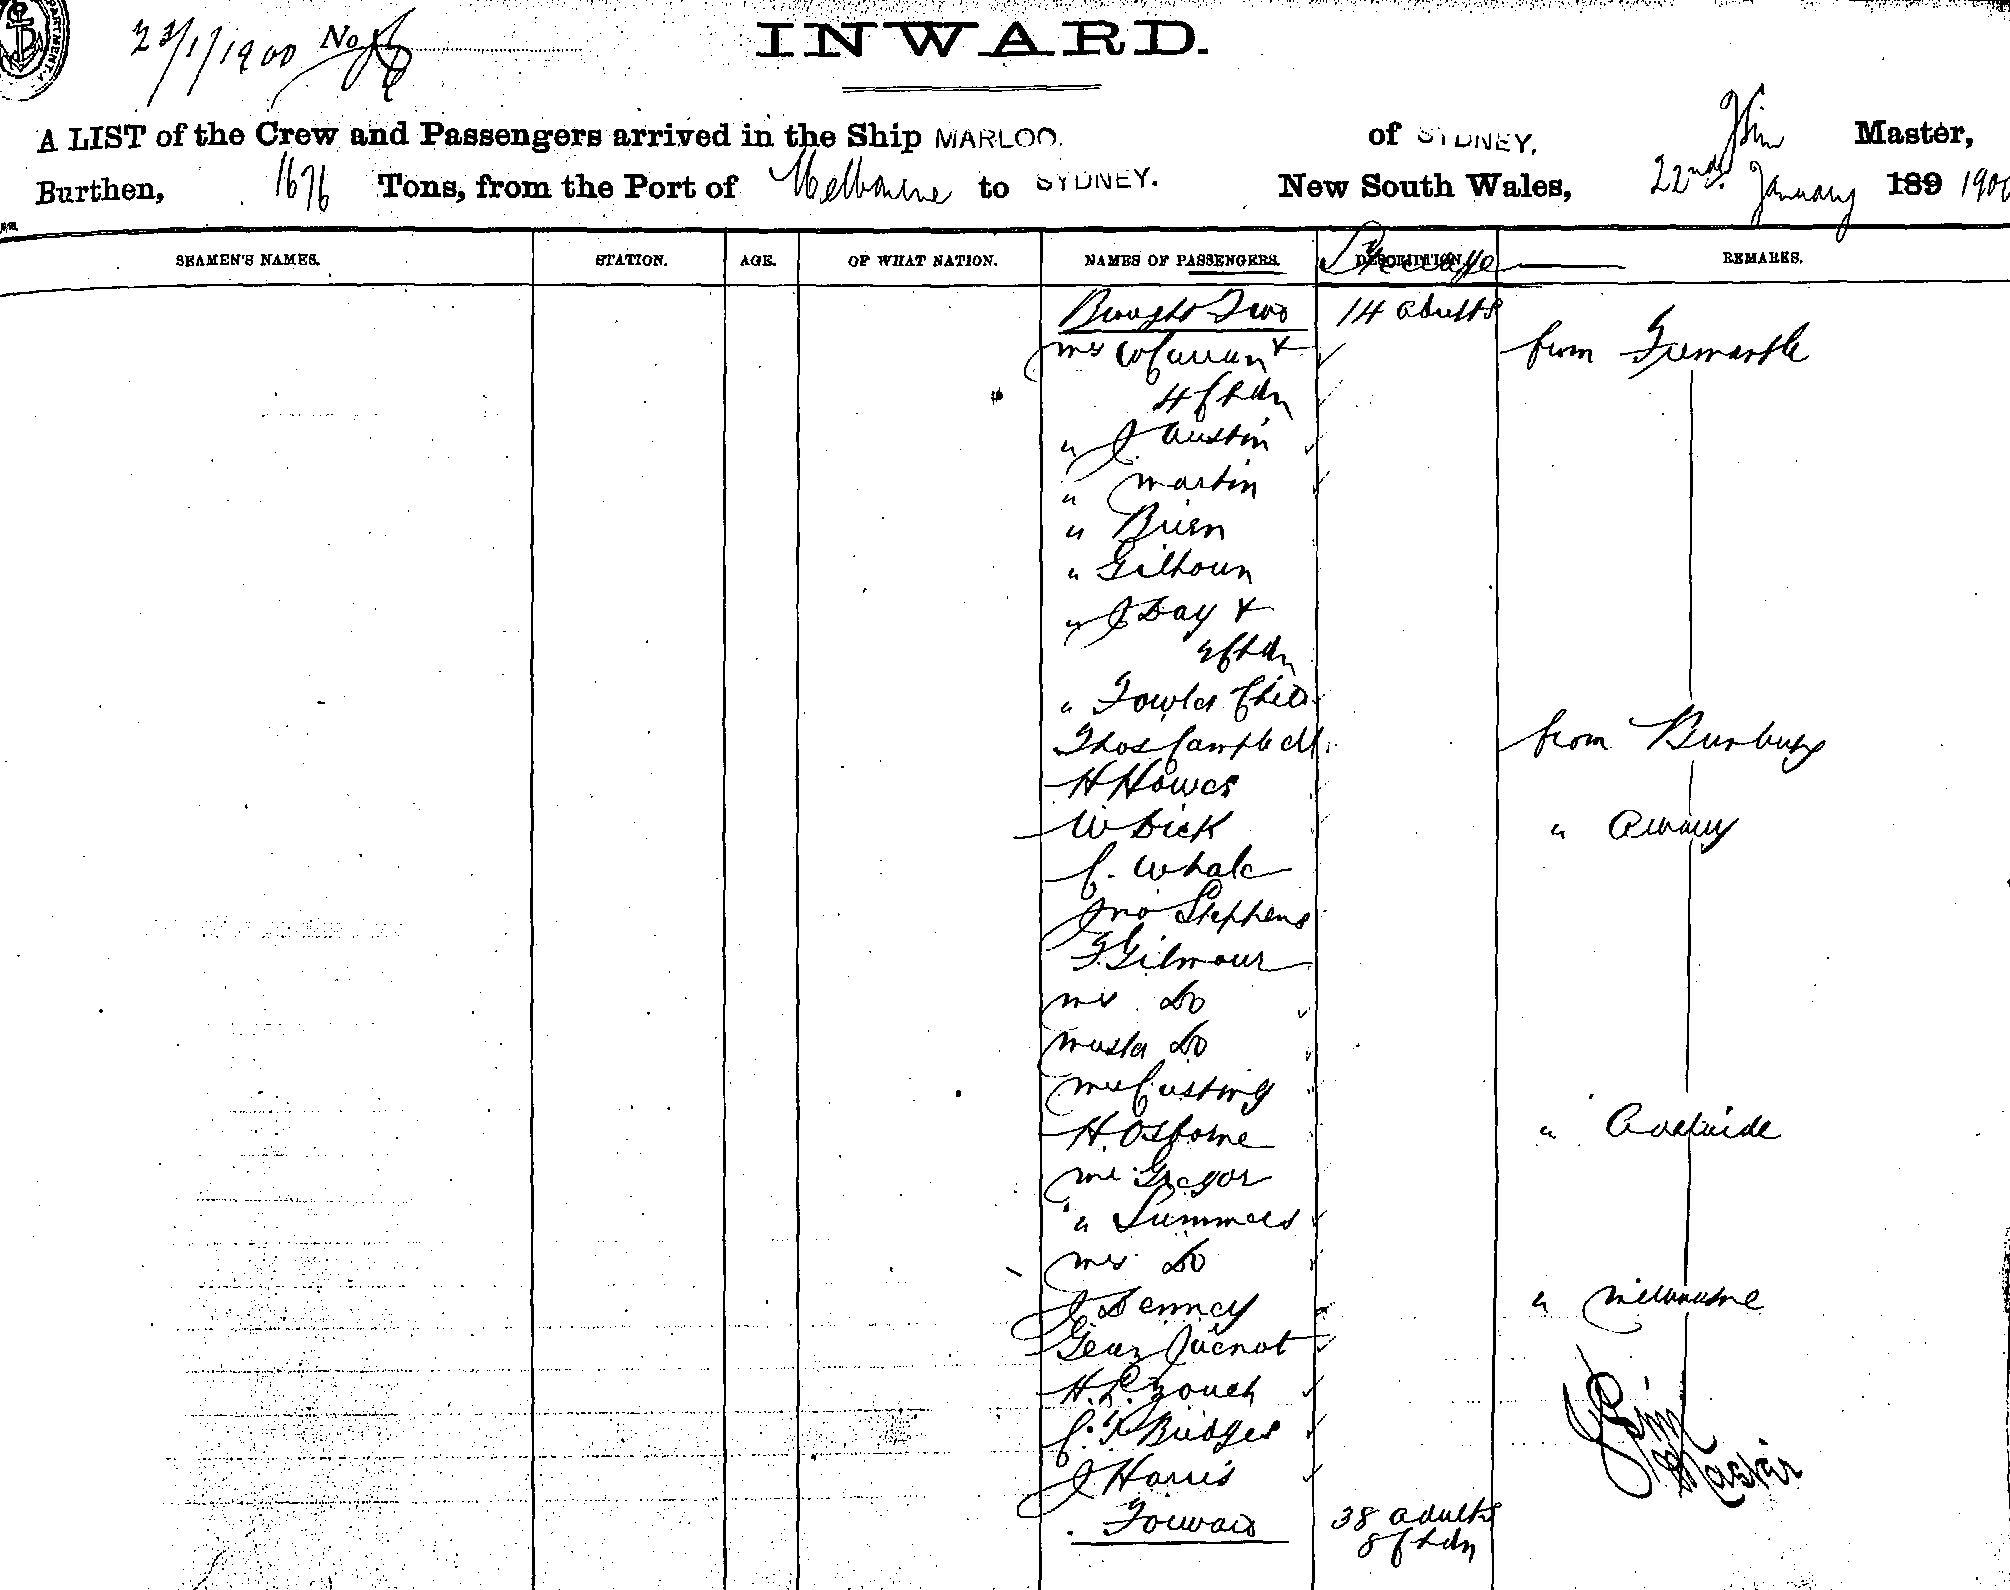 23/1/1900 No
INWARD.
A LIST of the Crew and Passengers arrived in the Ship MARLOO. of SYDNEY. Sim Master,
Burthen, 1676 Tons, from the Port of Melbourne to SYDNEY. New South Wales, 22nd January 189 1900
SEAMEN'S NAMES. STATION. AGE. OF WHAT NATION. NAMES OF PASSENGERS. DESCRIPTION. Steerage REMARKS.
Brought Fwd 14 adults
Mrs Curran & from Fremantle
4 Chdn
" J Austin
" Martin
" Brien
" Gilhoun
" J Day &
2 Chdn
" Fowler Child
Thos Campbell from Bunbury
H Howes
W Dick " Albany
C. Whale
Jno Stephens
F. Gilmour
Mrs Do
Master Do
Mrs Custing
H. Osborne " Adelaide
Mr Gregor
" Summers
Mrs Do
J Denney " Melbourne
Geuz Quenot
H. L. Zouch
C. F Bridges
J Harris
J Sim
Master
Forward 38 adults
8 Chdn